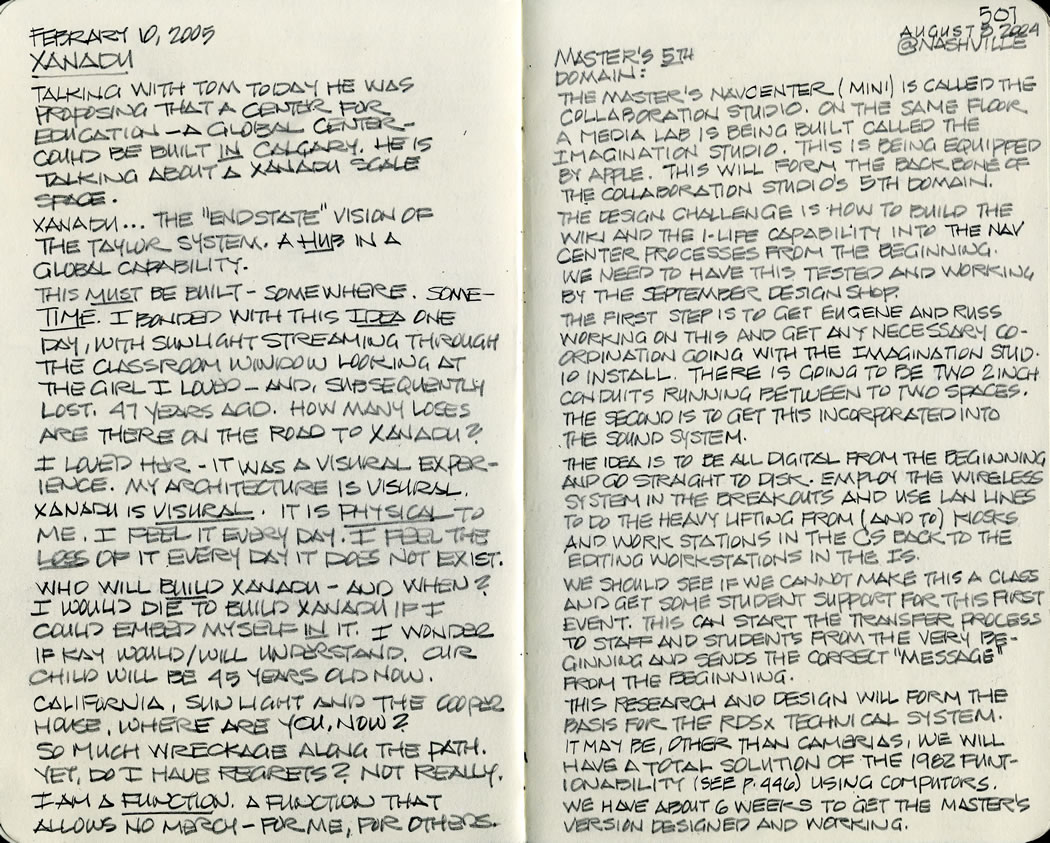 FEBRARY 10, 2005
XANADU
TALKING WITH TOM TODAY HE WAS
PROPOSING THAT A CENTER FOR
EDUCATION – A GLOBAL CENTER –
COULD BE BUILT IN CALGARY. HE IS
TALKING ABOUT A XANADU SCALE
SPACE.
XANADU... THE "ENDSTATE" VISION OF
THE TAYLOR SYSTEM. A HUB IN A
GLOBAL CAPABILITY.
THIS MUST BE BUILT – SOMEWHERE. SOME-
TIME. I BONDED WITH THIS IDEA ONE
DAY, WITH SUNLIGHT STREAMING THROUGH
THE CLASSROOM WINDOW LOOKING AT
THE GIRL I LOVED – AND, SUBSEQUENTLY
LOST. 47 YEARS AGO. HOW MANY LOSES
ARE THERE ON THE ROAD TO XANADU?
I LOVED HER – IT WAS A VISURAL EXPER-
IENCE. MY ARCHITECTURE IS VISURAL.
XANADU IS VISURAL. IT IS PHYSICAL TO
ME. I FEEL IT EVERY DAY. I FEEL THE
LOSS OF IT EVERY DAY IT DOES NOT EXIST.
WHO WILL BUILD XANADU – AND WHEN?
I WOULD DIE TO BUILD XANADU IF I
COULD EMBED MYSELF IN IT. I WONDER
IF KAY WOULD/WILL UNDERSTAND. OUR
CHILD WILL BE 45 YEARS OLD NOW.
CALIFORNIA, SUNLIGHT AND THE COOPER
HOUSE, WHERE ARE YOU, NOW?
SO MUCH WRECKAGE ALONG THE PATH.
YET, DO I HAVE REGRETS? NOT REALLY.
I AM A FUNCTION. A FUNCTION THAT
ALLOWS NO MERCY – FOR ME, FOR OTHERS.
507
AUGUST 3, 2004
@NASHVILLE
MASTER'S 5TH
DOMAIN:
THE MASTER'S NAVCENTER (MINI) IS CALLED THE
COLLABORATION STUDIO. ON THE SAME FLOOR
A MEDIA LAB IS BEING BUILT CALLED THE
IMAGINATION STUDIO. THIS IS BEING EQUIPPED
BY APPLE. THIS WILL FORM THE BACKBONE OF
THE COLLABORATION STUDIO'S 5TH DOMAIN.
THE DESIGN CHALLENGE IS HOW TO BUILD THE
WIKI AND THE I-LIFE CAPABILITY INTO THE NAV
CENTER PROCESSES FROM THE BEGINNING.
WE NEED TO HAVE THIS TESTED AND WORKING
BY THE SEPTEMBER DESIGNSHOP.
THE FIRST STEP IS TO GET EUGENE AND RUSS
WORKING ON THIS AND GET ANY NECESSARY CO-
ORDINATION GOING WITH THE IMAGINATION STUD-
IO INSTALL. THERE IS GOING TO BE TWO 2 INCH
CONDUITS RUNNING BETWEEN TO TWO SPACES.
THE SECOND IS TO GET THIS INCORPORATED INTO
THE SOUND SYSTEM.
THE IDEA IS TO BE ALL DIGITAL FROM THE BEGINNING
AND GO STRAIGHT TO DISK. EMPLOY THE WIRELESS
SYSTEM IN THE BREAKOUTS AND USE LAN LINES
TO DO THE HEAVY LIFTING FROM (AND TO) KIOSKS
AND WORK STATIONS IN THE CS BACK TO THE
EDITING WORKSTATIONS IN THE IS.
WE SHOULD SEE IF WE CANNOT MAKE THIS A CLASS
AND GET SOME STUDENT SUPPORT FOR THIS FIRST
EVENT. THIS CAN START THE TRANSFER PROCESS
TO STAFF AND STUDENTS FROM THE VERY BE-
GINNING AND SENDS THE CORRECT "MESSAGE"
FROM THE BEGINNING.
THIS RESEARCH AND DESIGN WILL FORM THE
BASIS FOR THE RDSx TECHNICAL SYSTEM.
IT MAY BE, OTHER THAN CAMERIAS, WE WILL
HAVE A TOTAL SOLUTION OF THE 1982 FUNT-
IONABILITY (SEE P. 446) USING COMPUTORS.
WE HAVE ABOUT 6 WEEKS TO GET THE MASTER'S
VERSION DESIGNED AND WORKING.